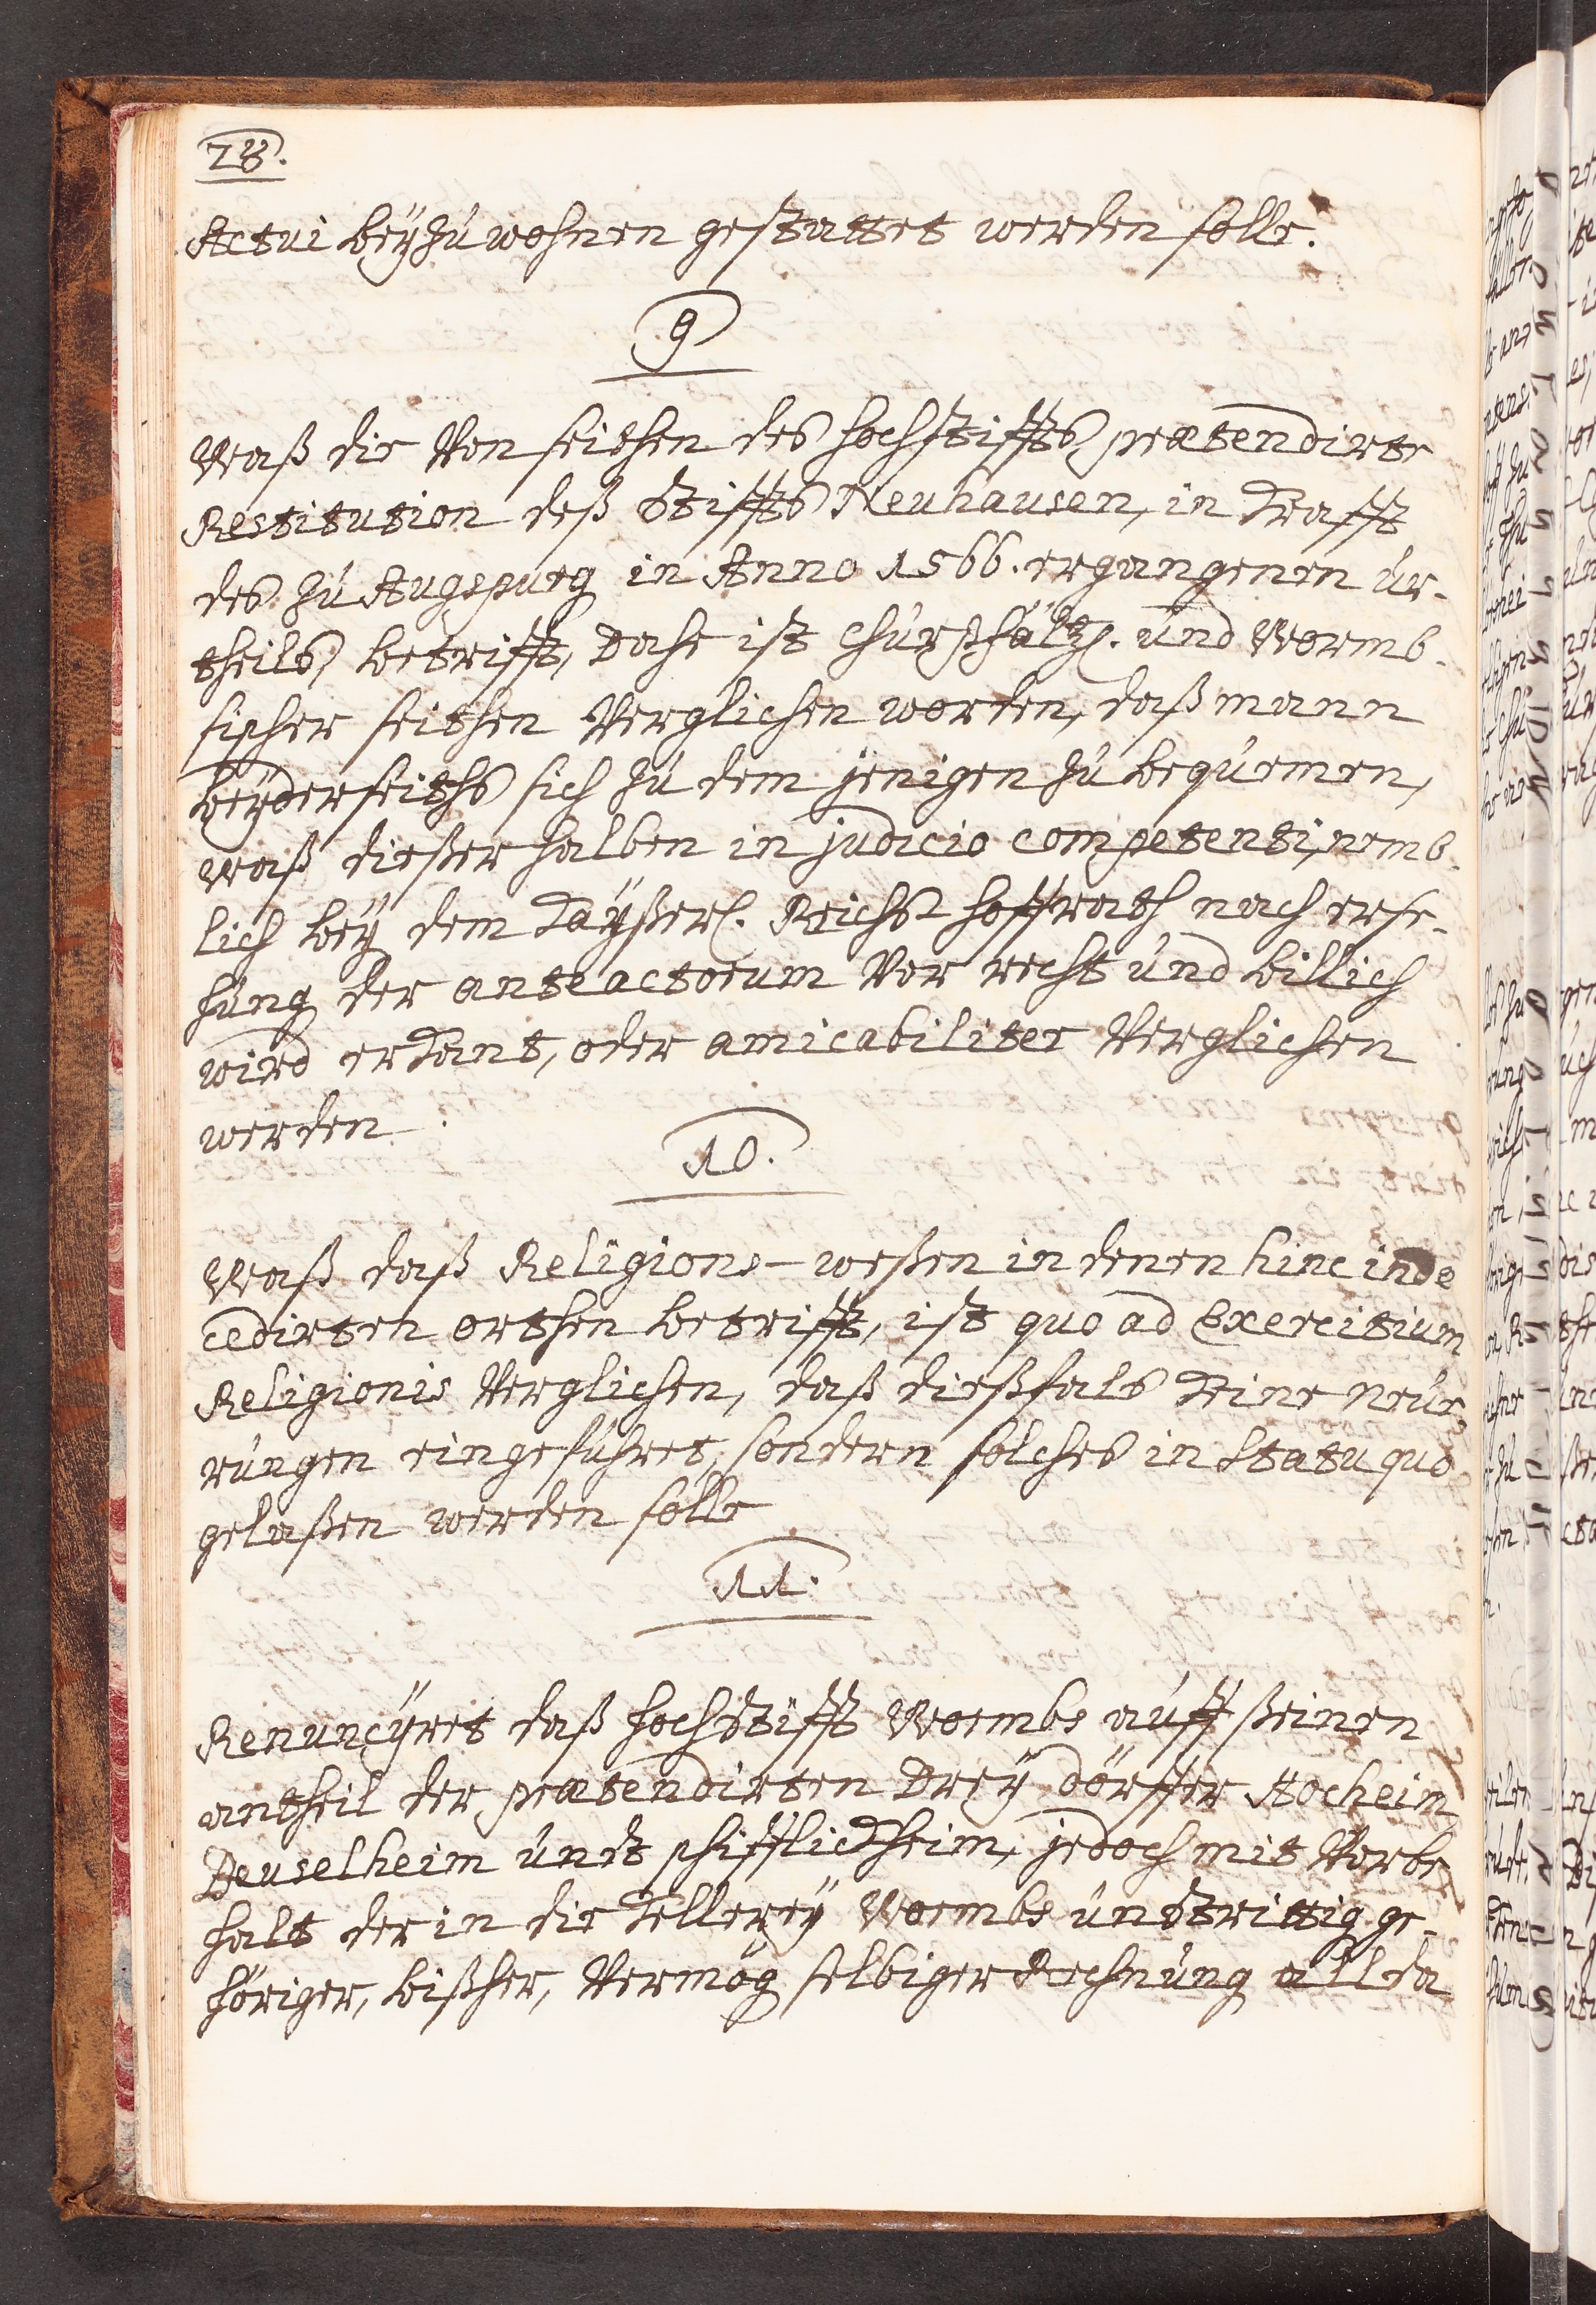 28.
Actui beÿzuwohnen gestattet werden solle.
9
Waß die Von seithen des hochstiffts prætendirte
Restitution deß Stiffts Neuhausen, in Krafft
des zu Augspurg in Anno 1566. ergangenen ur-
theils, betrifft, Dahe ist Churpfältz. und Wormb-
sischer seithen Verglichen worden, daß mann
beÿderseiths sich zu dem jenigen zu bequemen,
Waß dießerhalben in judicio competenti, nemb-
lich beÿ dem Kaÿßerl. Reichs hoffrath nach erse-
hung der anteactorum Vor recht und billich
wird erkant, oder amicabiliter Verglichen
werden.
10.
Waß daß Religions-weßen in denen hinc inde
cedirten orthen betrifft, ist quo ad Exercitium
Religionis Verglichen, daß dießfals Keine neue-
rungen eingeführet, sondern solches in Statu quo
gelaßen werden solle
11.
Renuncÿret daß hochstifft Wormbs auff ßeinen
antheil der prætendirten Dreÿ dörffer Hocheim,
Leuselheim undt pfifflickheim, jedoch mit Vorbe-
halt der in die Kellereÿ Wormbs undstrittig ge-
höriger, bißher, Vermög selbiger Rechnung allda